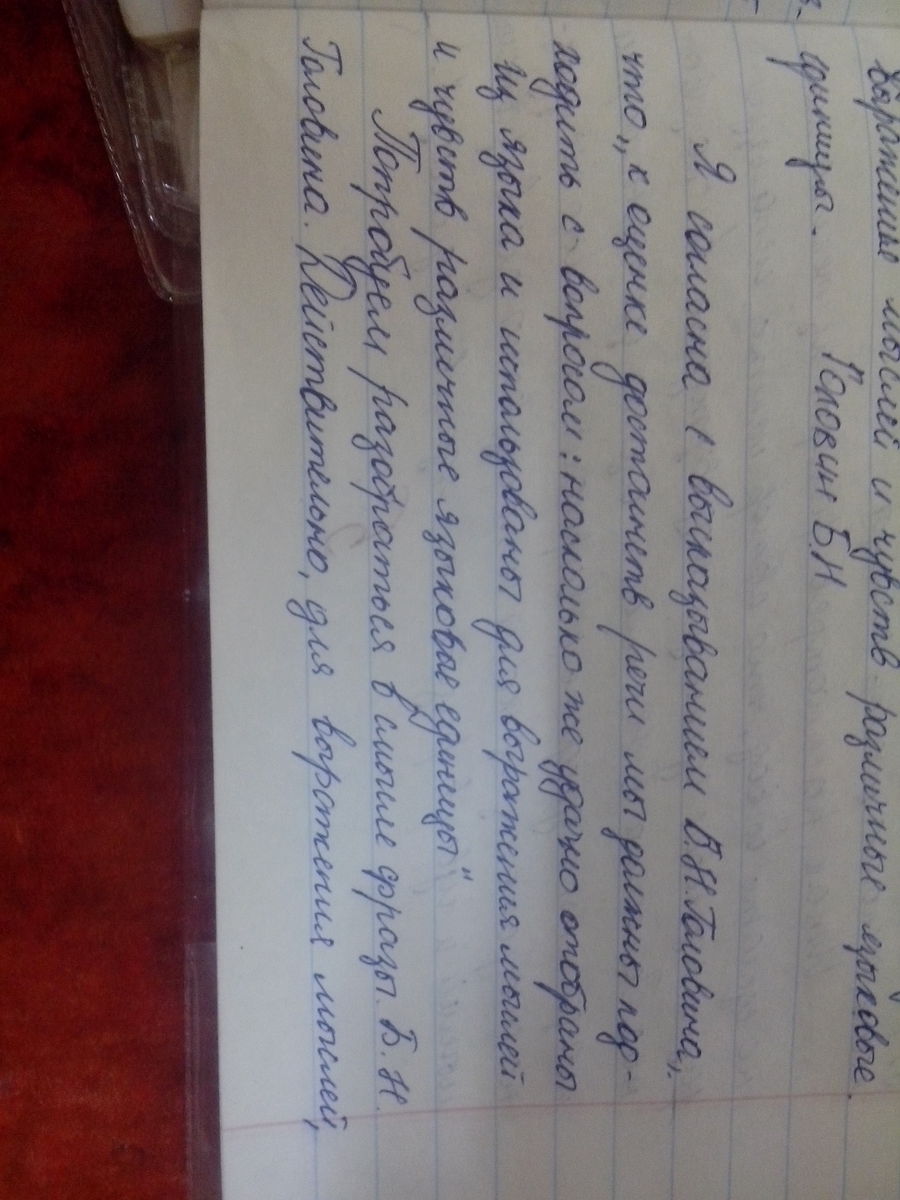 выражения мыслей и чувств различные языковые
единицы.
Головин Б.Н
Я согласна с высказыванием Б.Н.Головина,
что „к оценке достоинств речи мы должны под-
ходить с вопросом: насколько же удачно отобраны
из языка и использованы для выражения мыслей
и чувств различные языковые единицы"
Попробуем разобраться в смысле фразы Б.Н.
Головина. Действительно, для выражения мыслей,